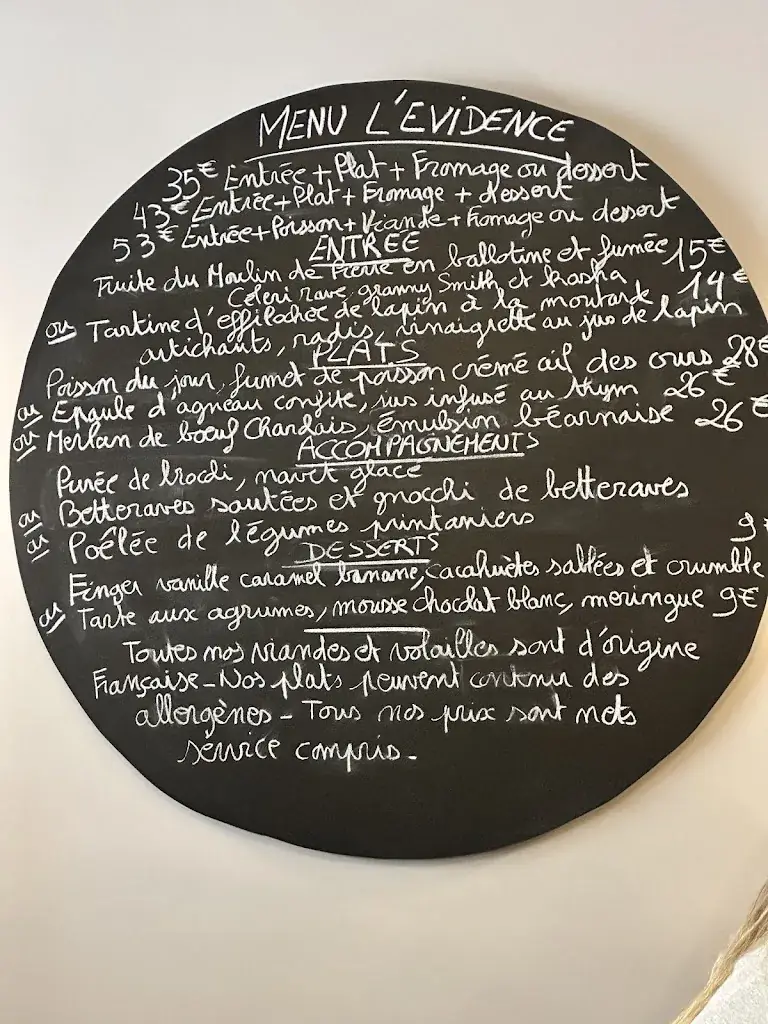 MENU L'EVIDENCE
35€ Entrée + Plat + Fromage ou dessert
43€ Entrée + Plat + Fromage + dessert
53€ Entrée + Poisson + Viande + Fromage ou dessert
ENTREE
Truite du Moulin de Pierre en ballotine et fumée 15€
Céleri rave, granny Smith et kasha
ou Tartine d'effilochée de lapin à la moutarde 14€
artichauts, radis, vinaigrette au jus de lapin
PLATS
Poisson du jour, fumet de poisson crémé ail des ours 28€
ou Epaule d'agneau confite, jus infusé au thym 26€
ou Merlan de boeuf Charolais, émulsion béarnaise 26€
ACCOMPAGNEMENTS
Purée de brocoli, navet glacé
ou Betteraves sautées et gnocchi de betteraves
ou Poêlée de légumes printaniers
DESSERTS
Finger vanille caramel banane, cacahuètes sablées et crumble 9€
ou Tarte aux agrumes, mousse chocolat blanc, meringue 9€
Toutes nos viandes et volailles sont d'origine
Française - Nos plats peuvent contenir des
allergènes - Tous nos prix sont nets
service compris -